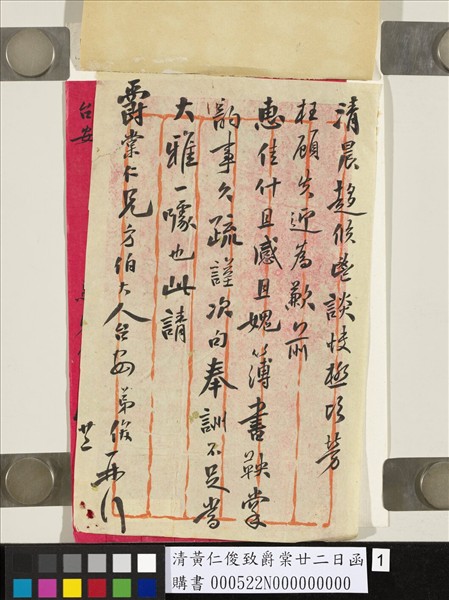 清晨趨候邕談快極頃勞
枉顧失迎為歉前
惠佳什且感且媿簿書鞅掌
韵事久疏謹次句奉訓不足當
大雅一噱也此請
爵棠仁兄方伯大人台安 弟俊
廿二
台安
清黃仁俊致爵棠廿二日函 1
購書 000522N000000000